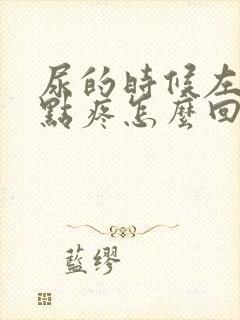 尿的時候左
點疼怎麼回
藍繆